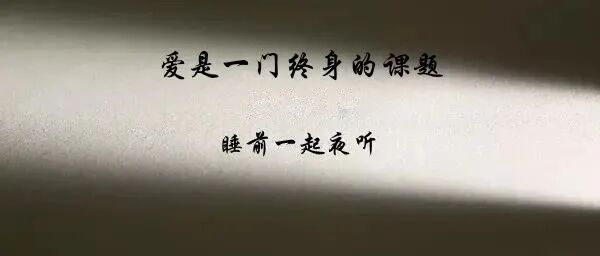 爱是一门终身的课题
睡前一起夜听